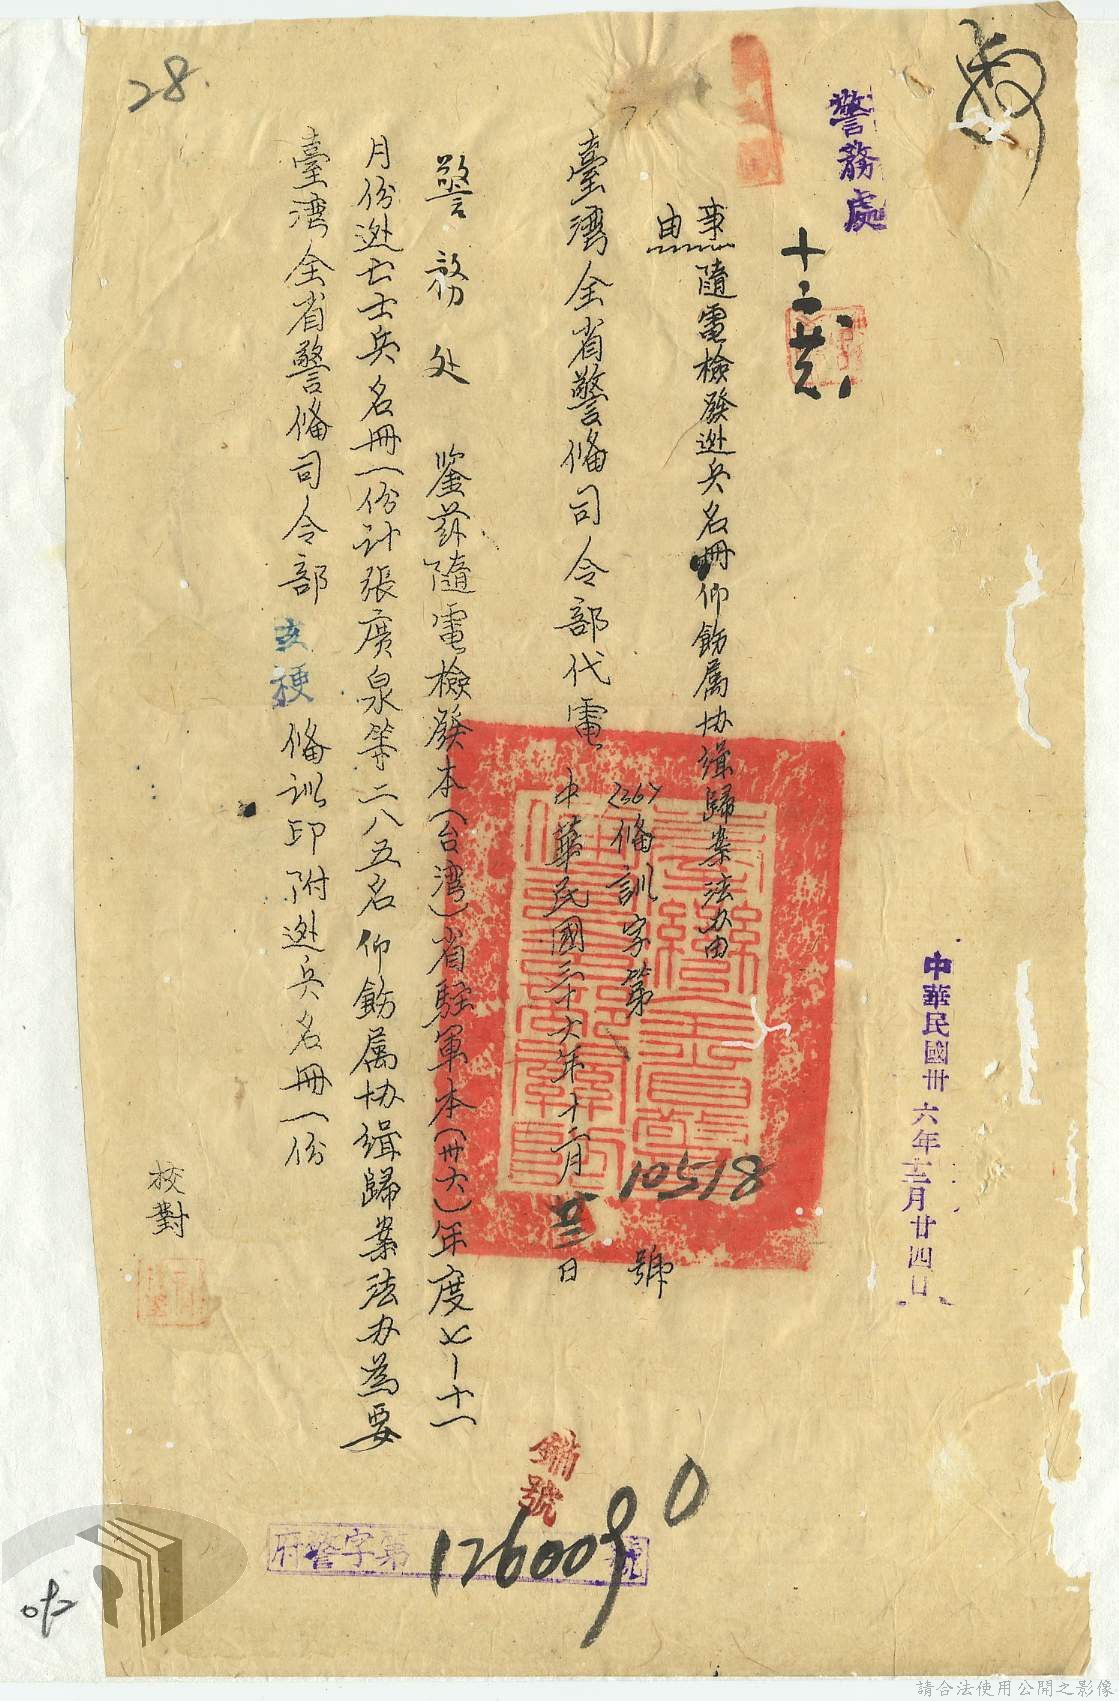 警務處
中華民國卅六年十二月廿四日
十二 廿
事由
隨電檢發逃兵名冊仰飭属协缉歸案法办由
臺湾全省警俻司令部代電
(36)俻訓字第10518號
中華民國三十六年十二月廿三日
警務处 鉴兹隨電檢發本(台湾)省駐軍本(卅六)年度七—十一
月份逃亡士兵名冊一份计張廣泉等二八五名仰飭属协缉歸案法办為要
臺湾全省警俻司令部亥梗俻训印附逃兵名冊一份
校對
28.
編號
府警字第126009號
0
请合法使用公開之影像